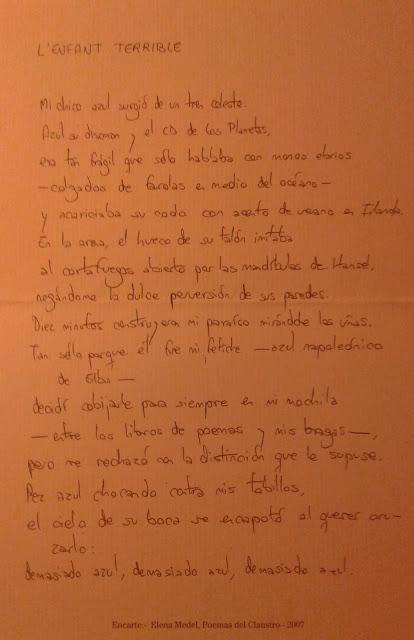 L'ENFANT TERRIBLE
Mi chico azul surgió de un tren celeste.
Azul su discman y el CD de Los Planetas,
era tan frágil que sólo hablaba con monos ebrios
—colgados de farolas en medio del océano—
y acariciaba su codo con acento de verano en Islandia.
En la arena, el hueco de su talón imitaba
al cortafuegos abierto por las mandíbulas de Hansel,
negándome la dulce perversión de sus paredes.
Diez minutos construyeron mi paraíso mirándole las uñas.
Tan sólo porque él fue mi fetiche —azul napoleónico
de Elba—
decidí cobijarle para siempre en mi mochila
—entre los libros de poemas y mis bragas—,
pero me rechazó con la distinción que le supuse.
Pez azul chocando contra mis tobillos,
el cielo de su boca se encapotó al querer cru-
zarlo:
demasiado azul, demasiado azul, demasiado azul.
Encarte.- Elena Medel, Poemas del Claustro - 2007